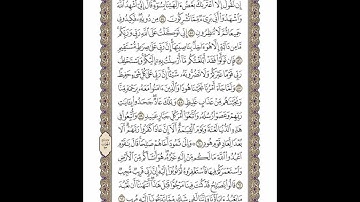 إِن نَّقُولُ إِلَّا ٱعۡتَرَىٰكَ بَعۡضُ ءَالِهَتِنَا بِسُوٓءٖۗ قَالَ إِنِّيٓ أُشۡهِدُ ٱللَّهَ
وَٱشۡهَدُوٓاْ أَنِّي بَرِيٓءٞ مِّمَّا تُشۡرِكُونَ ٥٤ مِن دُونِهِۦۖ فَكِيدُونِي
جَمِيعٗا ثُمَّ لَا تُنظِرُونِ ٥٥ إِنِّي تَوَكَّلۡتُ عَلَى ٱللَّهِ رَبِّي وَرَبِّكُمۚ
مَّا مِن دَآبَّةٍ إِلَّا هُوَ ءَاخِذُۢ بِنَاصِيَتِهَآۚ إِنَّ رَبِّي عَلَىٰ صِرَٰطٖ مُّسۡتَقِيمٖ
٥٦ فَإِن تَوَلَّوۡاْ فَقَدۡ أَبۡلَغۡتُكُم مَّآ أُرۡسِلۡتُ بِهِۦٓ إِلَيۡكُمۡۚ وَيَسۡتَخۡلِفُ
رَبِّي قَوۡمًا غَيۡرَكُمۡ وَلَا تَضُرُّونَهُۥ شَيۡـًٔاۚ إِنَّ رَبِّي عَلَىٰ كُلِّ شَيۡءٍ حَفِيظٞ
٥٧ وَلَمَّا جَآءَ أَمۡرُنَا نَجَّيۡنَا هُودٗا وَٱلَّذِينَ ءَامَنُواْ مَعَهُۥ بِرَحۡمَةٖ مِّنَّا
وَنَجَّيۡنَٰهُم مِّنۡ عَذَابٍ غَلِيظٖ ٥٨ وَتِلۡكَ عَادٞۖ جَحَدُواْ بِـَٔايَٰتِ
رَبِّهِمۡ وَعَصَوۡاْ رُسُلَهُۥ وَٱتَّبَعُوٓاْ أَمۡرَ كُلِّ جَبَّارٍ عَنِيدٖ ٥٩ وَأُتۡبِعُواْ فِي
هَٰذِهِ ٱلدُّنۡيَا لَعۡنَةٗ وَيَوۡمَ ٱلۡقِيَٰمَةِۗ أَلَآ إِنَّ عَادٗا كَفَرُواْ رَبَّهُمۡۗ أَلَا
بُعۡدٗا لِّعَادٖ قَوۡمِ هُودٖ ٦٠ وَإِلَىٰ ثَمُودَ أَخَاهُمۡ صَٰلِحٗاۚ قَالَ يَٰقَوۡمِ
ٱعۡبُدُواْ ٱللَّهَ مَا لَكُم مِّنۡ إِلَٰهٍ غَيۡرُهُۥۖ هُوَ أَنشَأَكُم مِّنَ ٱلۡأَرۡضِ
وَٱسۡتَعۡمَرَكُمۡ فِيهَا فَٱسۡتَغۡفِرُوهُ ثُمَّ تُوبُوٓاْ إِلَيۡهِۚ إِنَّ رَبِّي قَرِيبٞ مُّجِيبٞ
٦١ قَالُواْ يَٰصَٰلِحُ قَدۡ كُنتَ فِينَا مَرۡجُوّٗا قَبۡلَ هَٰذَآۖ أَتَنۡهَىٰنَآ أَن نَّعۡبُدَ
مَا يَعۡبُدُ ءَابَآؤُنَا وَإِنَّنَا لَفِي شَكّٖ مِّمَّا تَدۡعُونَآ إِلَيۡهِ مُرِيبٖ ٦٢